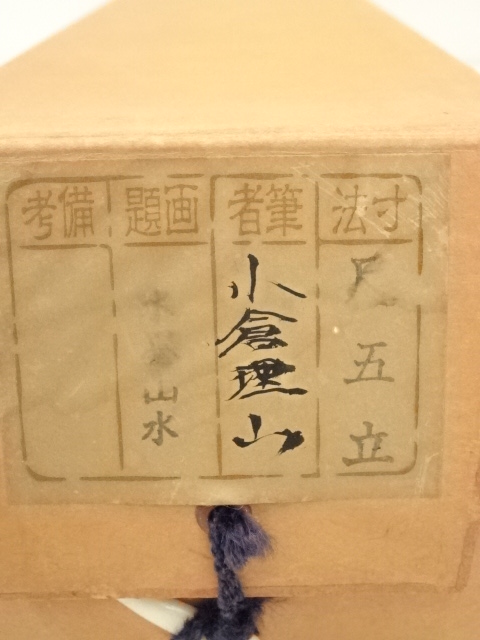 寸法
尺五立
筆者
小倉理山
画題
水墨山水
備考